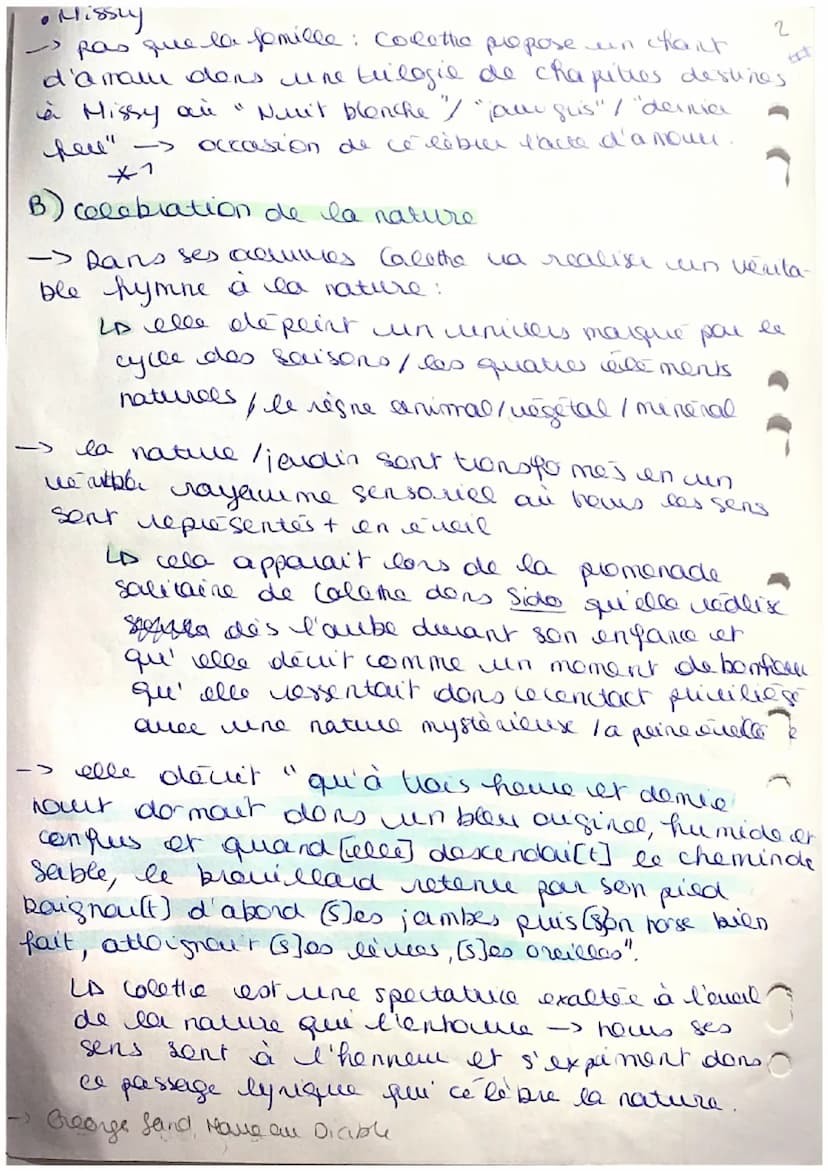 • Missy
2
-> pas que la famille : Colette propose un chant
d'amour dans une trilogie de chapitres destinés
à Missy où "Nuit blanche"/ "jour gris"/ "dernier
feu" -> occasion de célébrer l'acte d'amour.
*1
B) célébration de la nature
-> Dans ses oeuvres Colette va réaliser un vérita-
ble hymne à la nature :
↳ elle dépeint un univers marqué par le
cycle des saisons / les quatre éléments
naturels / le règne animal/végétal / minéral
-> la nature / jardin sont transformés en un
véritable royaume sensoriel où tous les sens
sont représentés + en éveil
↳ cela apparait lors de la promenade
solitaire de Colette dans Sido qu'elle réalise
dès l'aube durant son enfance et
qu'elle décrit comme un moment de bonheur
qu'elle ressentait dans le contact privilégié
avec une nature mystérieuse / a peine éveillée
-> elle décrit " qu'à trois heure et demie
tout dormait dans un bleu originel, humide et
confus et quand [elle] descendai[t] le chemin de
sable, le brouillard retenu par son pied
baignai[t] d'abord [s]es jambes puis [s]on torse bien
fait, atteignait [s]es lèvres, [s]es oreilles".
↳ Colette est une spectatrice exaltée à l'éveil
de la nature qui l'entoure -> tous ses
sens sont à l'honneur et s'expriment dans
ce passage lyrique qui célèbre la nature.
-> George Sand, Mare au Diable